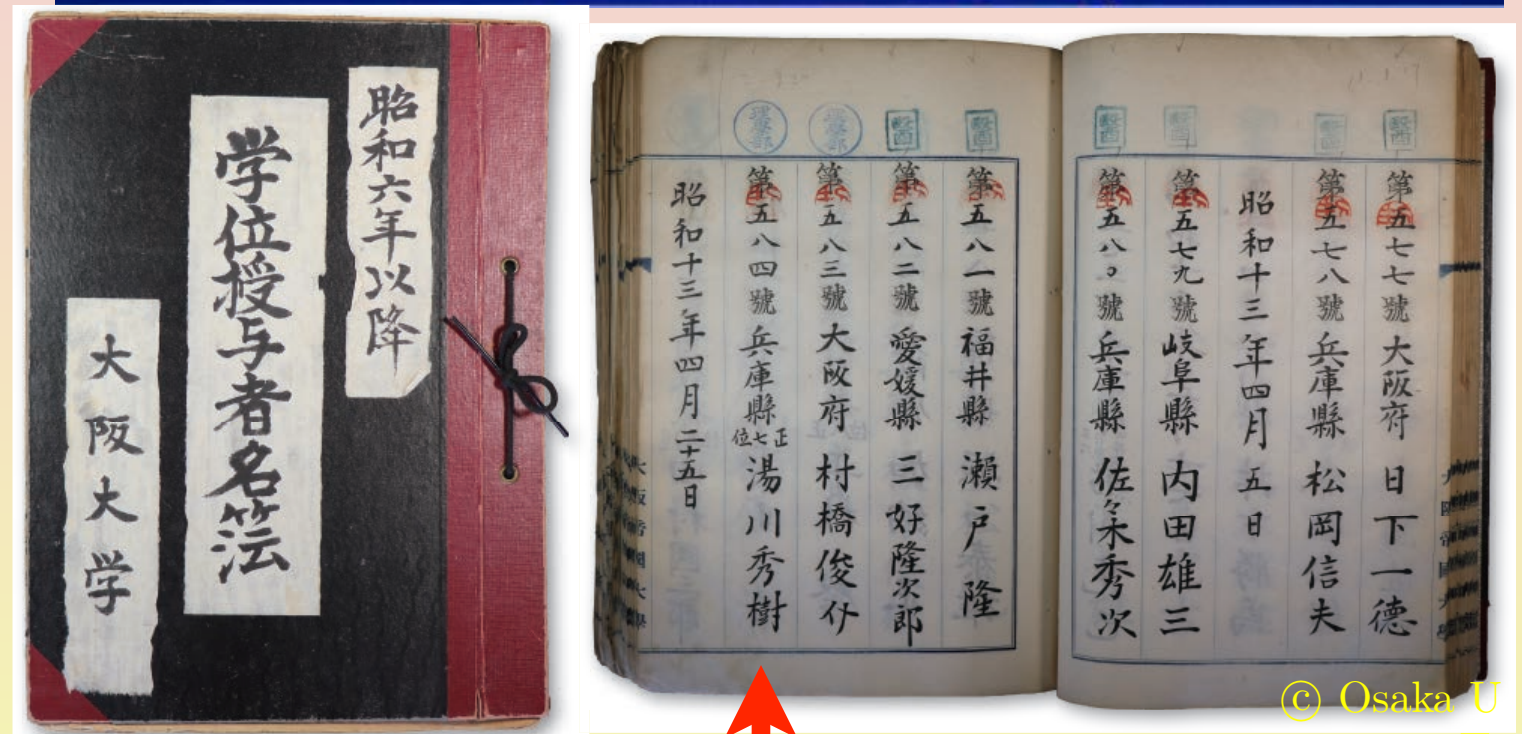 昭和六年以降
学位授与者名簿
大阪大学
第五七七號 大阪府 日下一德
第五七八號 兵庫縣 松岡信夫
昭和十三年四月五日
第五七九號 岐阜縣 内田雄三
第五八〇號 兵庫縣 佐々木秀次
第五八一號 福井縣 瀬戸隆
第五八二號 愛媛縣 三好隆次郎
理學部
第五八三號 大阪府 村橋俊介
理學部
第五八四號 兵庫縣 正七位 湯川秀樹
昭和十三年四月二十五日
© Osaka U